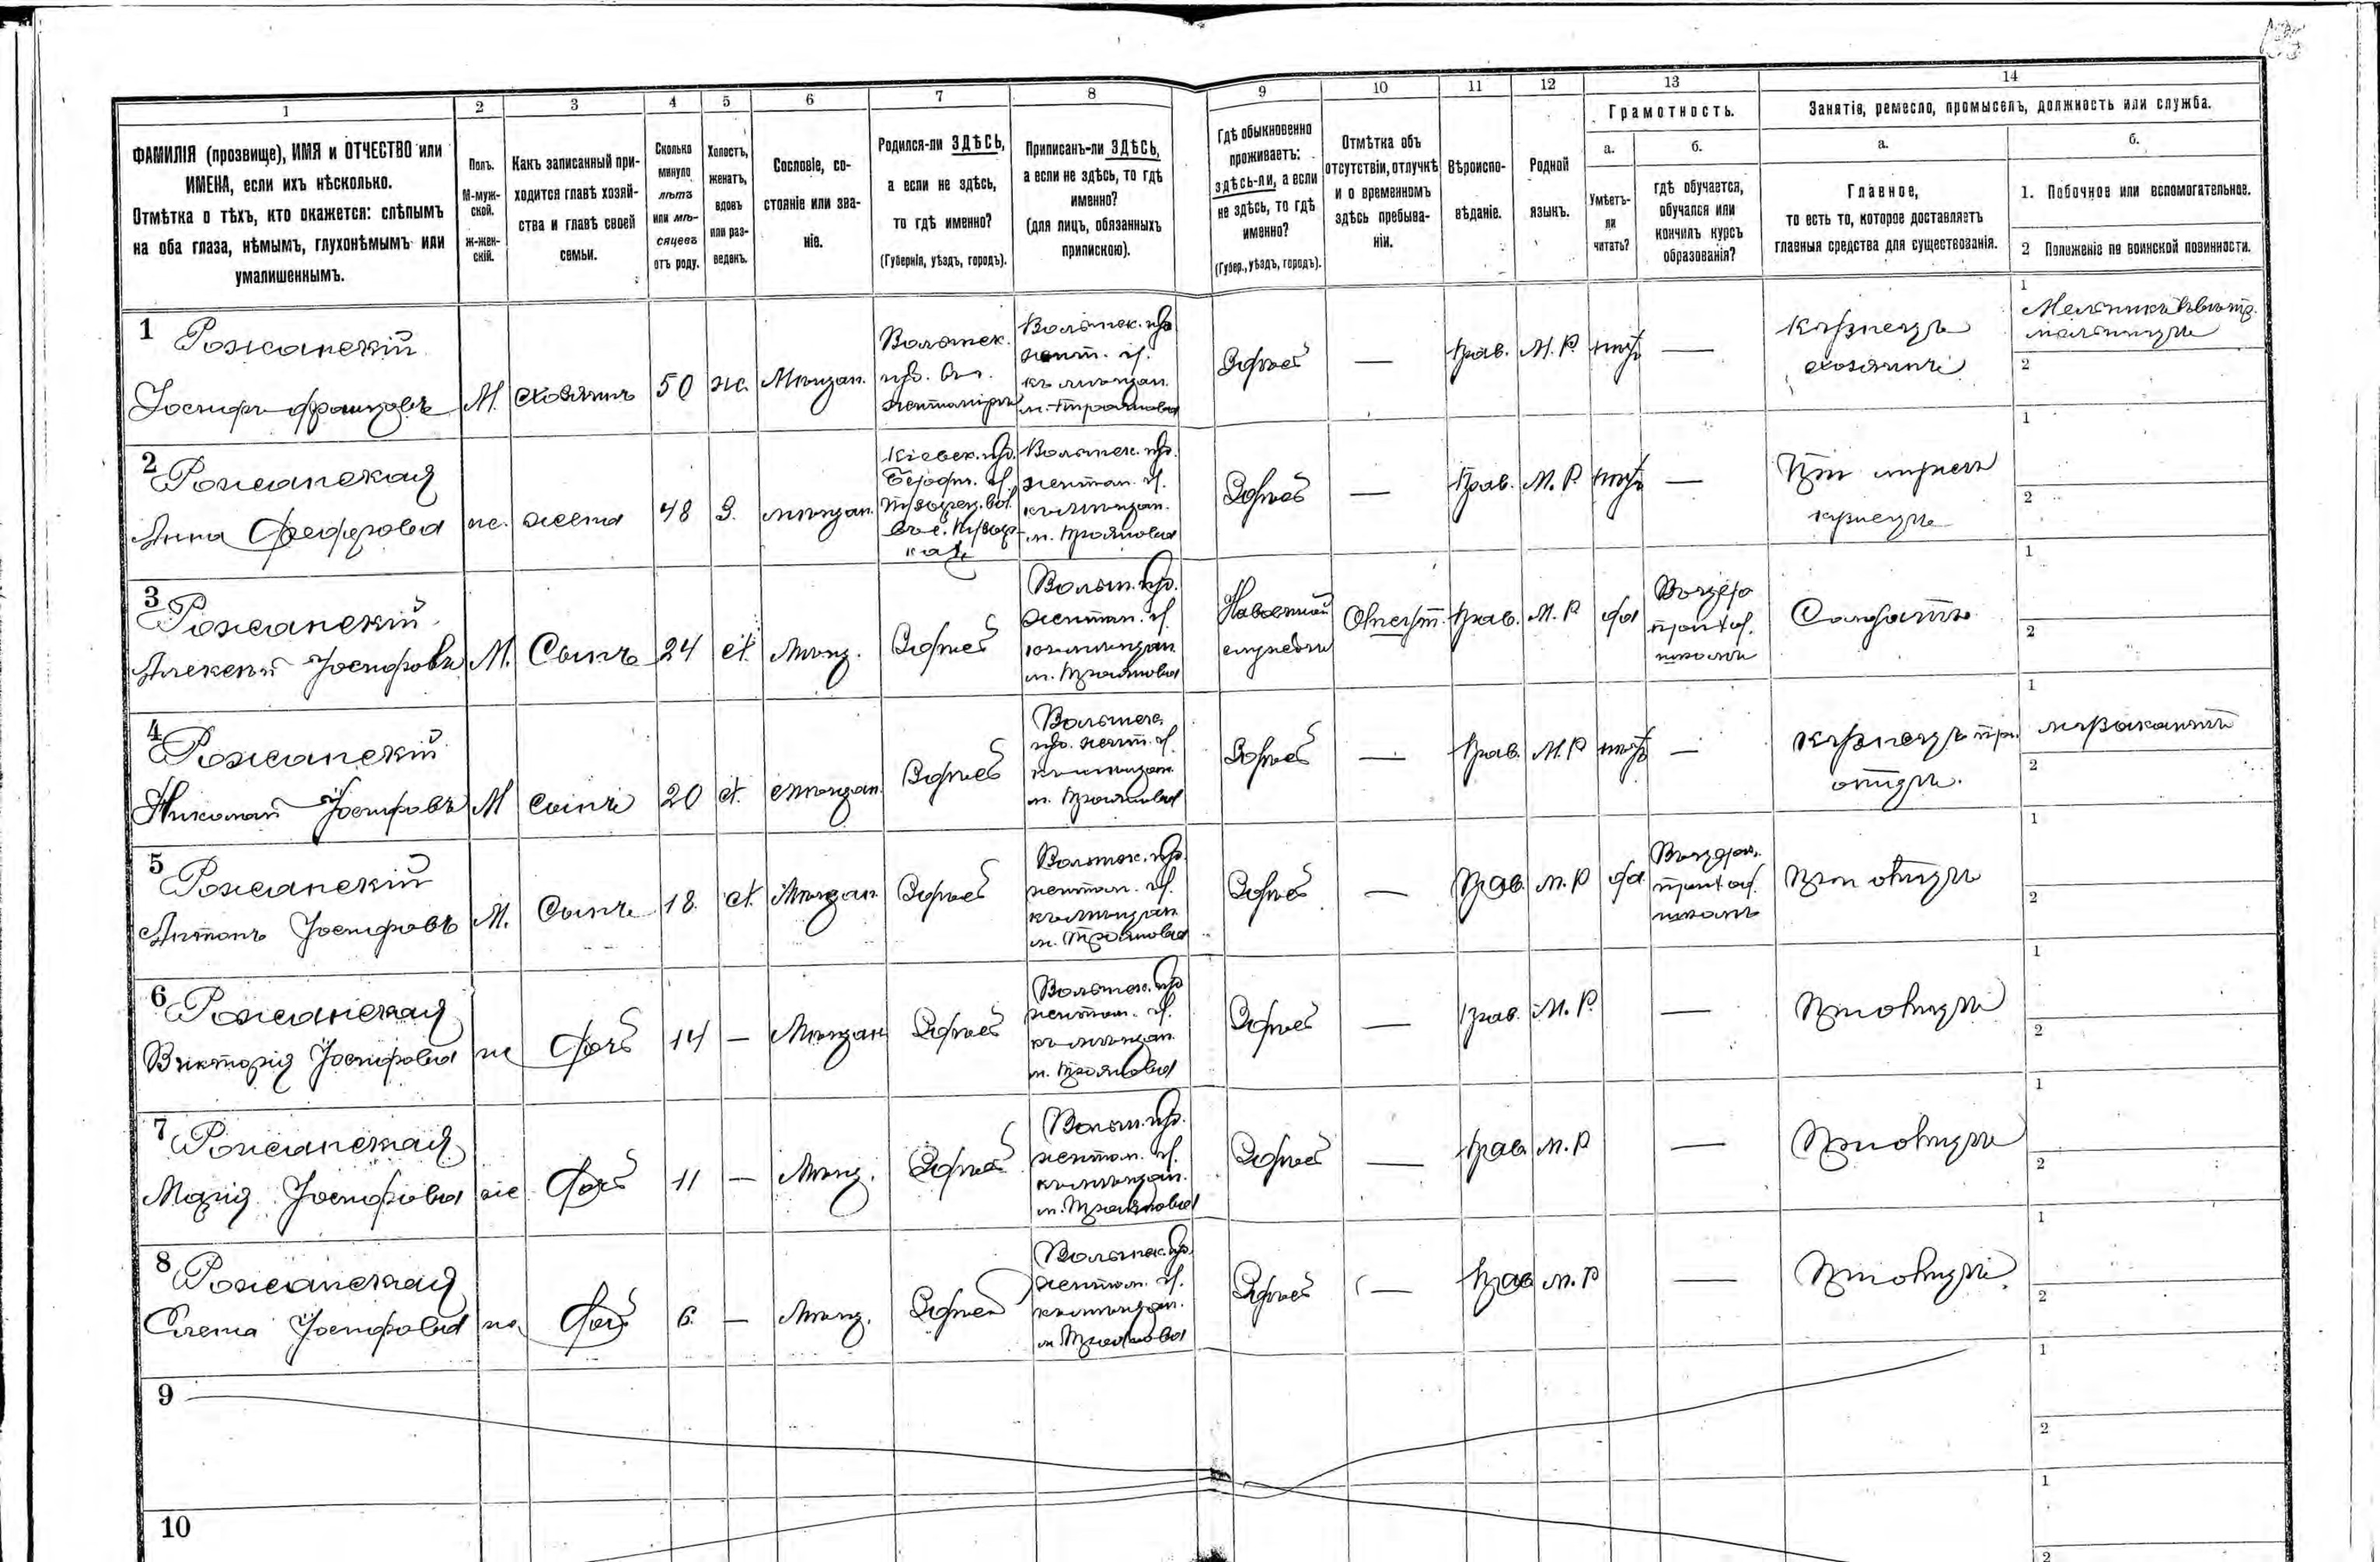 1 2 3 4 5 6 7 8 9 10 11 12 13 14
ФАМИЛІЯ (прозвище), ИМЯ и ОТЧЕСТВО или
ИМЕНА, если ихъ нѣсколько.
Отмѣтка о тѣхъ, кто окажется: слѣпымъ
на оба глаза, нѣмымъ, глухонѣмымъ или
умалишеннымъ.
Полъ.
М-муж-
ской.
Ж-жен-
скій.
Какъ записанный при-
ходится главѣ хозяй-
ства и главѣ своей
семьи.
Сколько
минуло
лѣтъ
или мѣ-
сяцевъ
отъ роду.
Холостъ,
женатъ,
вдовъ
или раз-
веденъ.
Сословіе, со-
стояніе или зва-
ніе.
Родился-ли ЗДѢСЬ,
а если не здѣсь,
то гдѣ именно?
(Губернія, уѣздъ, городъ).
Приписанъ-ли ЗДѢСЬ,
а если не здѣсь, то гдѣ
именно?
(для лицъ, обязанныхъ
припискою).
Гдѣ обыкновенно
проживаетъ:
здѣсь-ли, а если
не здѣсь, то гдѣ
именно?
(Губер., уѣздъ, городъ).
Отмѣтка объ
отсутствіи, отлучкѣ
и о временномъ
здѣсь пребыва-
ніи.
Вѣроиспо-
вѣданіе.
Родной
языкъ.
Грамотность.
а.
Умѣетъ-
ли
читать?
б.
гдѣ обучается,
обучался или
кончилъ курсъ
образованія?
Занятія, ремесло, промыселъ, должность или служба.
а.
Главное,
то есть то, которое доставляетъ
главныя средства для существованія.
б.
1. Побочное или вспомогательное.
2 Положеніе по воинской повинности.
1 Рожанскій
Іосифъ
М. хозяинъ 50 ж. Мѣщан.
Волынск.
губ.
Волынск. губ
жит. у.
къ мѣщан.
м. Трояновка
Здѣсь — Прав. М. Р. нѣтъ —
кузнецъ
хозяинъ
1
Мельникъ
2
2 Рожанская
Анна
ж. жена 48 З. мѣщан.
Кіевск. губ.
Волынск. губ.
житом. у.
къ мѣщан.
м. Трояновка
Здѣсь — Прав. М. Р. нѣтъ —
При мужѣ
кузнецѣ
1
2
3 Рожанскій
Алексѣй Іосифовъ
М. Сынъ 24 х. мѣщ. Здѣсь
Волын. губ.
житом. у.
къ мѣщан.
м. Трояновка
На военной
службѣ
Отсут. Прав. М. Р да
школѣ
Солдатъ
1
2
4 Рожанскій
Николай Іосифовъ
М сынъ 20 х. мѣщан. Здѣсь
Волынск.
губ. жит. у.
къ мѣщан.
м. Трояновка
Здѣсь — Прав. М. Р нѣтъ —
кузнецъ при
отцѣ.
1
музыкантъ
2
5 Рожанскій
Антонъ Іосифовъ
М. Сынъ 18. х. Мѣщан. Здѣсь
Волынск. губ.
житом. у.
къ мѣщан.
м. Трояновка
Здѣсь — Прав. М. Р да
школѣ
При отцѣ
1
2
6 Рожанская
Викторія Іосифова
ж дочь 14 — Мѣщан Здѣсь
Волынск. губ
житом. у.
къ мѣщан.
м. Трояновка
Здѣсь — Прав. М. Р. —
При отцѣ
1
2
7 Рожанская
Марія Іосифова
ж дочь 11 — Мѣщ. Здѣсь
Волын. губ.
житом. у.
къ мѣщан.
м. Трояновка
Здѣсь — Прав. М. Р —
При отцѣ
1
2
8 Рожанская
Іосифова
ж дочь 6. — Мѣщ. Здѣсь
Волынск. губ.
житом. у.
къ мѣщан.
м. Трояновка
Здѣсь — Прав М. Р —
При отцѣ
1
2
9
1
2
10
1
2